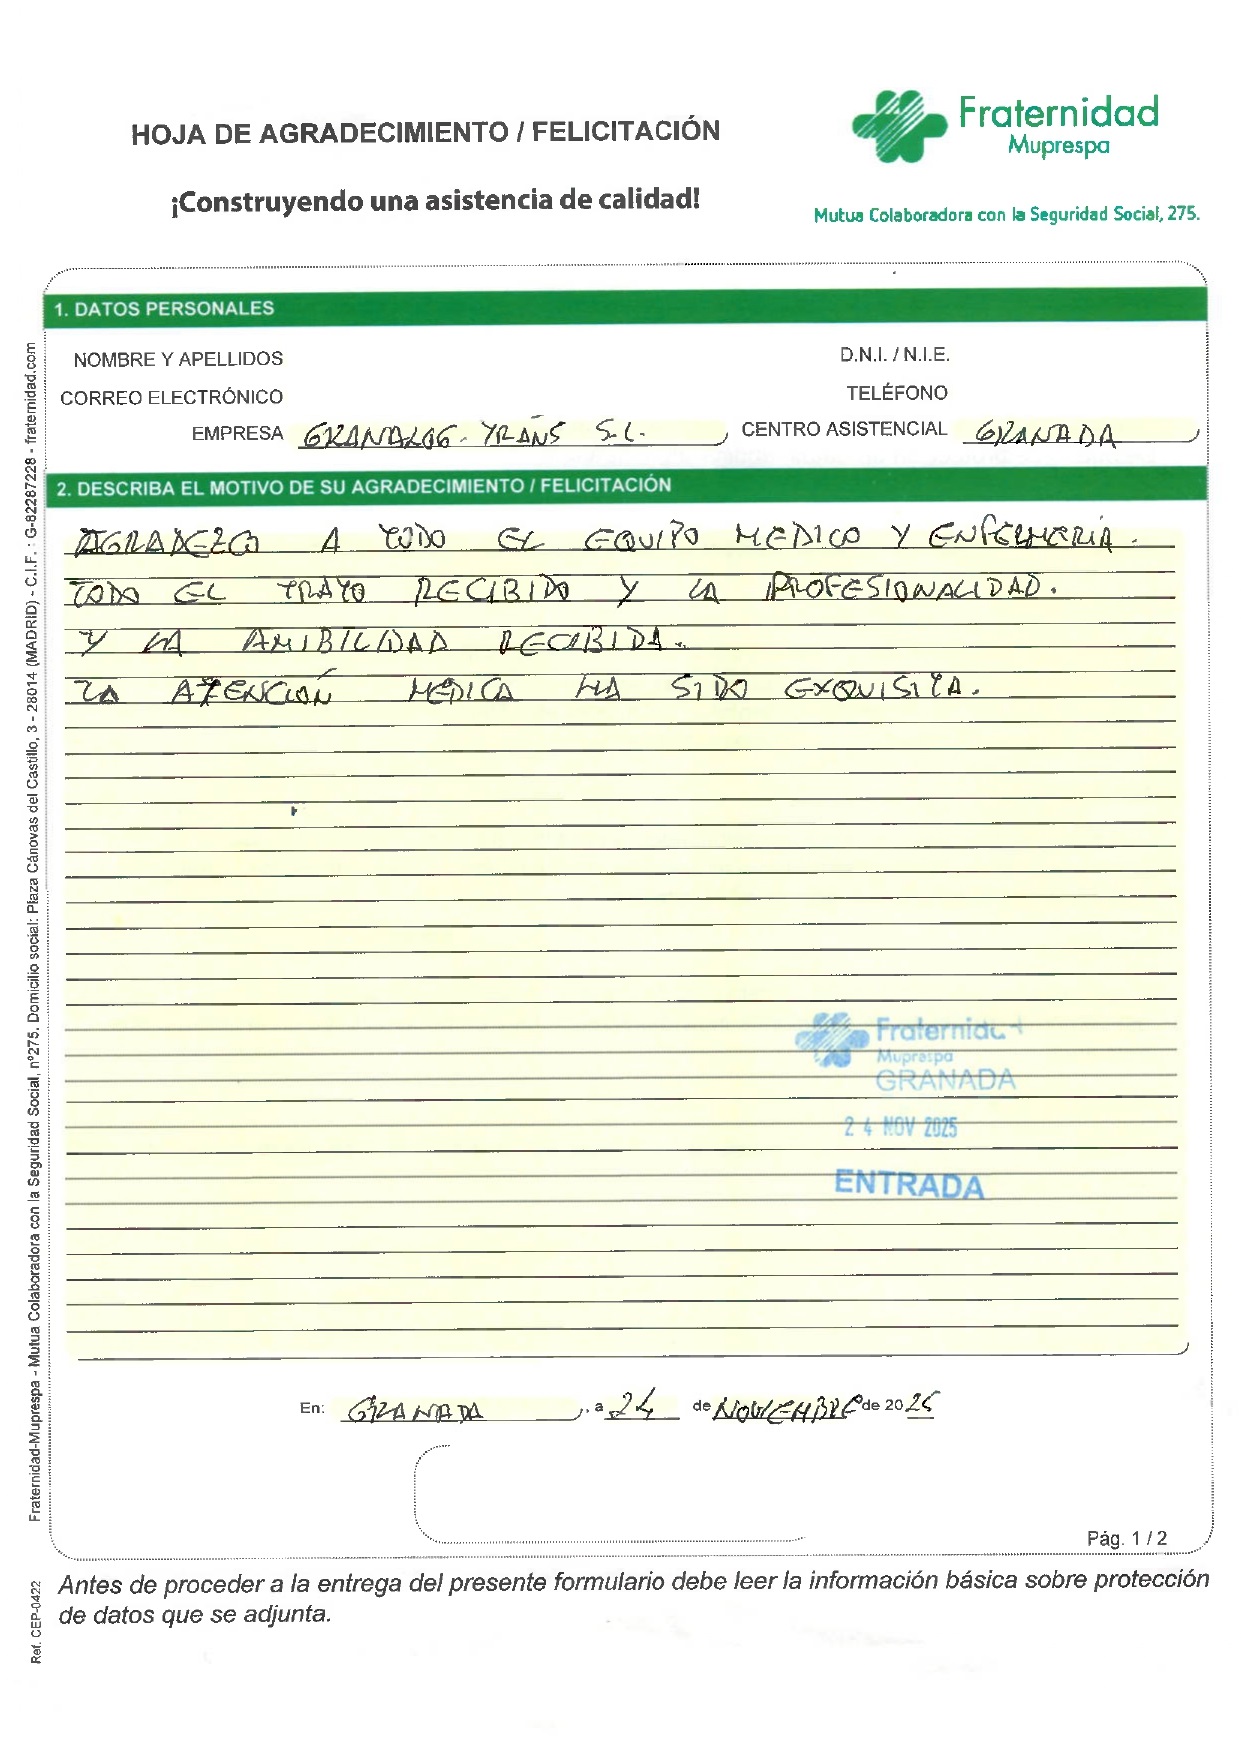 HOJA DE AGRADECIMIENTO / FELICITACIÓN
¡Construyendo una asistencia de calidad!
Fraternidad
Muprespa
Mutua Colaboradora con la Seguridad Social, 275.
1. DATOS PERSONALES
NOMBRE Y APELLIDOS
D.N.I. / N.I.E.
CORREO ELECTRÓNICO
TELÉFONO
EMPRESA GRANALOG-TRANS S.L. CENTRO ASISTENCIAL GRANADA
2. DESCRIBA EL MOTIVO DE SU AGRADECIMIENTO / FELICITACIÓN
AGRADEZCO A TODO EL EQUIPO MEDICO Y ENFERMERIA.
TODO EL TRATO RECIBIDO Y LA PROFESIONALIDAD.
Y LA AMIBILIDAD RECIBIDA.
LA ATENCIÓN MEDICA HA SIDO EXQUISITA.
Fraternidad
Muprespa
GRANADA
24 NOV 2025
ENTRADA
En: GRANADA, a 24 de NOVIEMBRE de 2025
Pág. 1 / 2
Antes de proceder a la entrega del presente formulario debe leer la información básica sobre protección
de datos que se adjunta.
Fraternidad-Muprespa - Mutua Colaboradora con la Seguridad Social, nº275. Domicilio social: Plaza Cánovas del Castillo, 3 - 28014 (MADRID) - C.I.F. : G-82287228 - fraternidad.com
Ref. CEP-0422